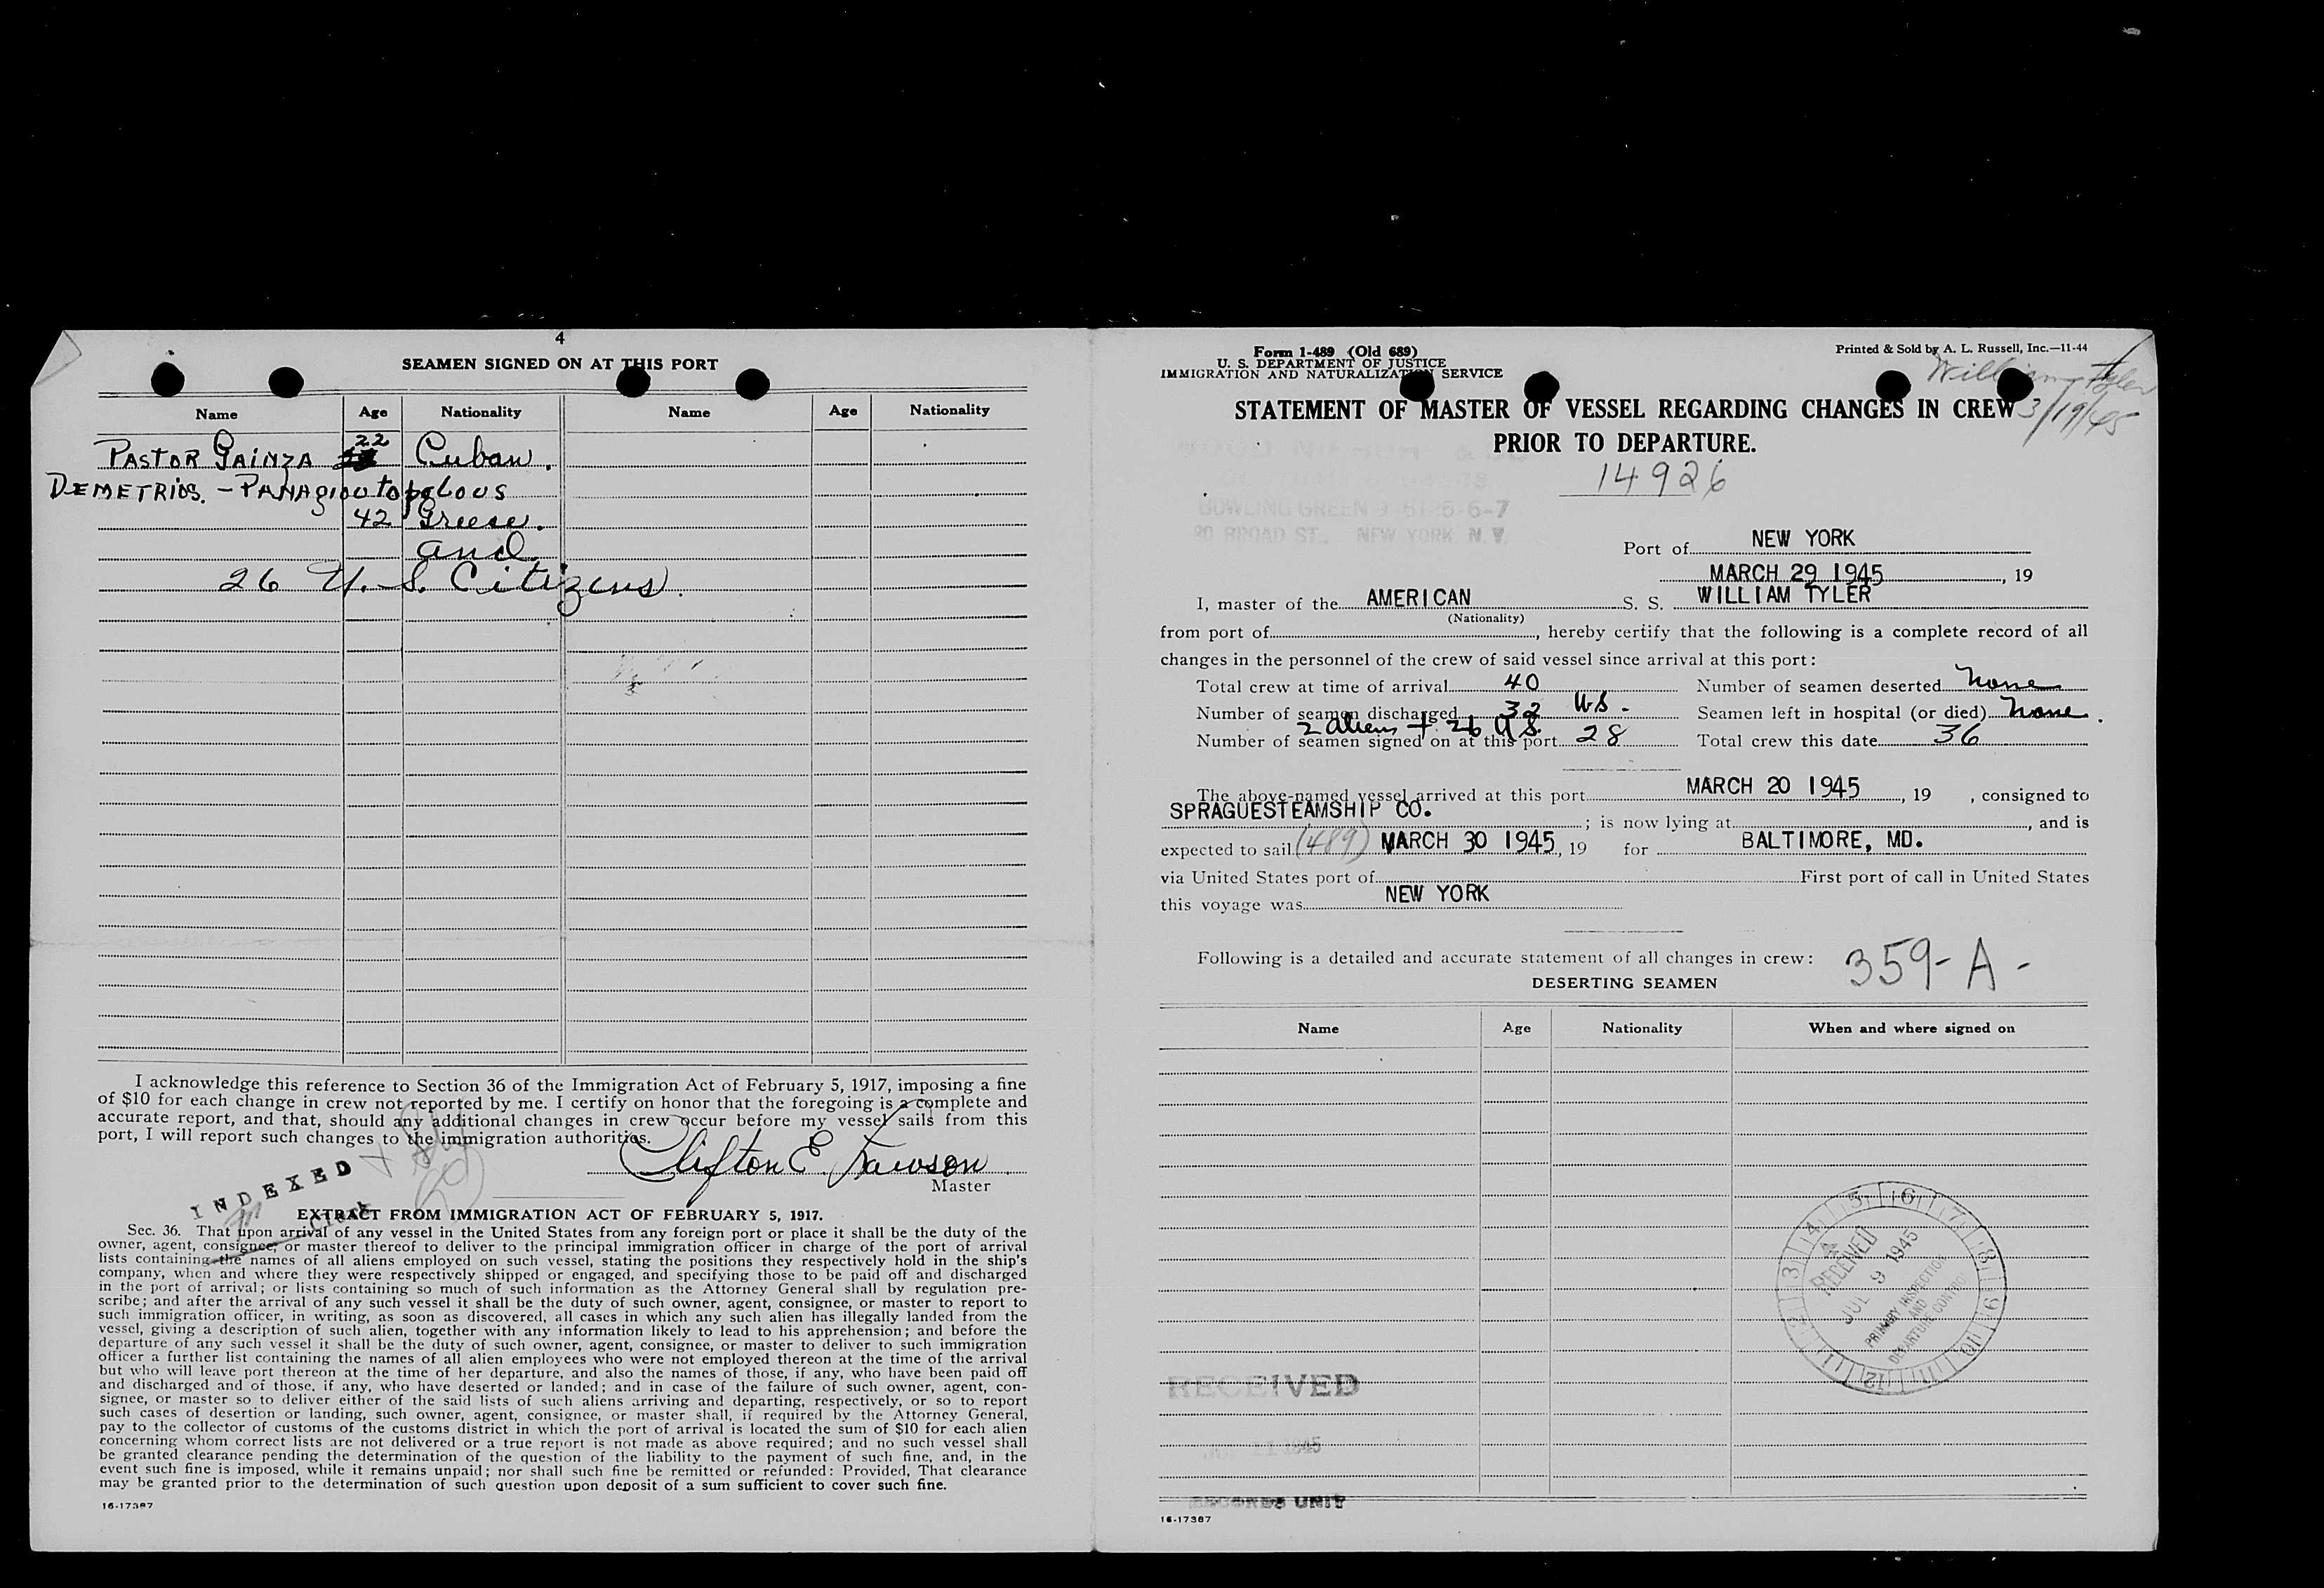 4
SEAMEN SIGNED ON AT THIS PORT
Name Age Nationality Name Age Nationality
22
PASTOR GAINZA Cuban.
DEMETRIOS. - PANAGIOUTOPOLOUS
42 Greese.
and
26 U.S. Citizens.
I acknowledge this reference to Section 36 of the Immigration Act of February 5, 1917, imposing a fine
of $10 for each change in crew not reported by me. I certify on honor that the foregoing is a complete and
accurate report, and that, should any additional changes in crew occur before my vessel sails from this
port, I will report such changes to the immigration authorities.
Clifton E. Lawson
Master
INDEXED
EXTRACT FROM IMMIGRATION ACT OF FEBRUARY 5, 1917.
Sec. 36. That upon arrival of any vessel in the United States from any foreign port or place it shall be the duty of the
owner, agent, consignee, or master thereof to deliver to the principal immigration officer in charge of the port of arrival
lists containing the names of all aliens employed on such vessel, stating the positions they respectively hold in the ship's
company, when and where they were respectively shipped or engaged, and specifying those to be paid off and discharged
in the port of arrival; or lists containing so much of such information as the Attorney General shall by regulation pre-
scribe; and after the arrival of any such vessel it shall be the duty of such owner, agent, consignee, or master to report to
such immigration officer, in writing, as soon as discovered, all cases in which any such alien has illegally landed from the
vessel, giving a description of such alien, together with any information likely to lead to his apprehension; and before the
departure of any such vessel it shall be the duty of such owner, agent, consignee, or master to deliver to such immigration
officer a further list containing the names of all alien employees who were not employed thereon at the time of the arrival
but who will leave port thereon at the time of her departure, and also the names of those, if any, who have been paid off
and discharged and of those, if any, who have deserted or landed; and in case of the failure of such owner, agent, con-
signee, or master so to deliver either of the said lists of such aliens arriving and departing, respectively, or so to report
such cases of desertion or landing, such owner, agent, consignee, or master shall, if required by the Attorney General,
pay to the collector of customs of the customs district in which the port of arrival is located the sum of $10 for each alien
concerning whom correct lists are not delivered or a true report is not made as above required; and no such vessel shall
be granted clearance pending the determination of the question of the liability to the payment of such fine, and, in the
event such fine is imposed, while it remains unpaid; nor shall such fine be remitted or refunded: Provided, That clearance
may be granted prior to the determination of such question upon deposit of a sum sufficient to cover such fine.
16-17387
Form 1-489 (Old 689)
U. S. DEPARTMENT OF JUSTICE
IMMIGRATION AND NATURALIZATION SERVICE
Printed & Sold by A. L. Russell, Inc.—11-44
William Tyler
3/19/45
STATEMENT OF MASTER OF VESSEL REGARDING CHANGES IN CREW
PRIOR TO DEPARTURE.
14926
BOWLING GREEN 9-6125-6-7
20 BROAD ST., NEW YORK, N.Y.
Port of NEW YORK
MARCH 29 1945, 19
I, master of the AMERICAN S. S. WILLIAM TYLER
(Nationality)
from port of , hereby certify that the following is a complete record of all
changes in the personnel of the crew of said vessel since arrival at this port:
Total crew at time of arrival 40 Number of seamen deserted None
Number of seamen discharged 32 US - Seamen left in hospital (or died) None.
2 aliens + 26 U.S.
Number of seamen signed on at this port 28 Total crew this date 36
The above-named vessel arrived at this port MARCH 20 1945, 19 , consigned to
SPRAGUESTEAMSHIP CO. ; is now lying at , and is
expected to sail (489) MARCH 30 1945, 19 for BALTIMORE, MD.
via United States port of First port of call in United States
this voyage was NEW YORK
Following is a detailed and accurate statement of all changes in crew: 359-A-
DESERTING SEAMEN
Name Age Nationality When and where signed on
5 6 7 8 9 10 11 12 1 2 3 4
RECEIVED
JUL 9 1945
PRIMARY INSPECTION
AND
DEPARTURE CONTROL
RECEIVED
1945
RECORDS UNIT
16-17387